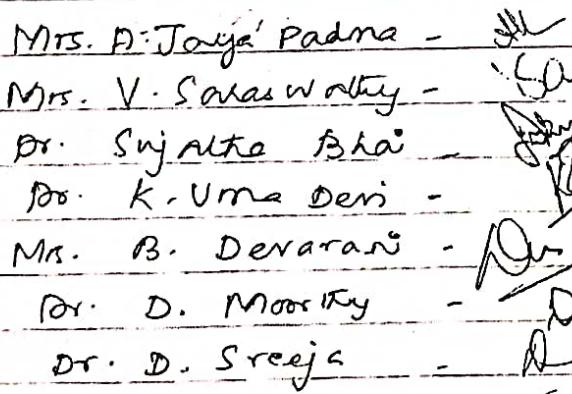 Mrs. A. Jaya Padma -
Mrs. V. Saraswathy -
Dr. Sujatha Bhai -
Dr. K. Uma Devi -
Mrs. B. Devarani -
Dr. D. Moorthy -
Dr. D. Sreeja -